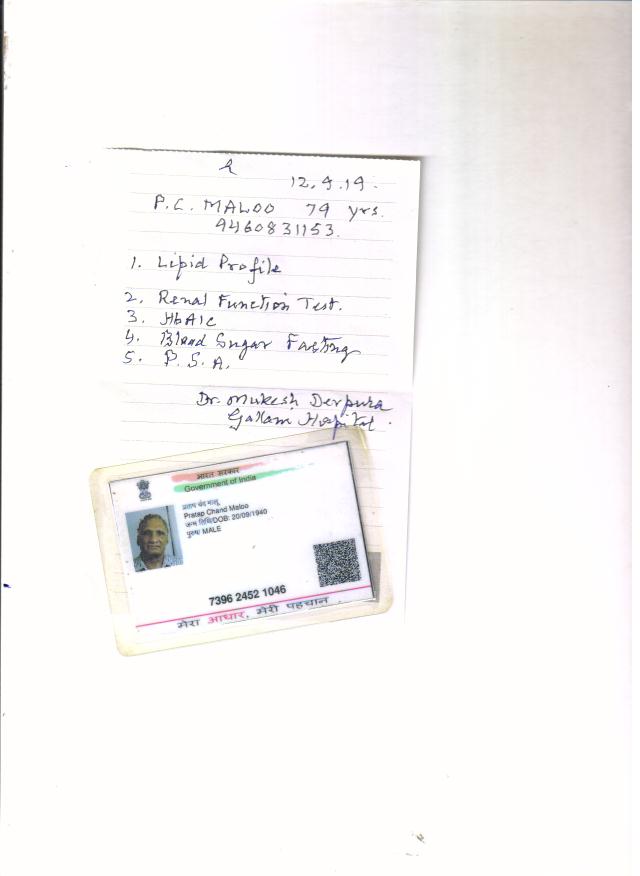 12.9.19.
P.C. MALOO 79 yrs.
9460831153.
1. Lipid Profile
2. Renal Function Test.
3. HbA1c
4. Blood Sugar Fasting
5. P.S.A.
Dr. Mukesh Derpura
Hospital.
भारत सरकार
Government of India
प्रताप चंद मालू
Pratap Chand Maloo
जन्म तिथि/DOB: 20/09/1940
पुरुष/ MALE
7396 2452 1046
मेरा आधार, मेरी पहचान